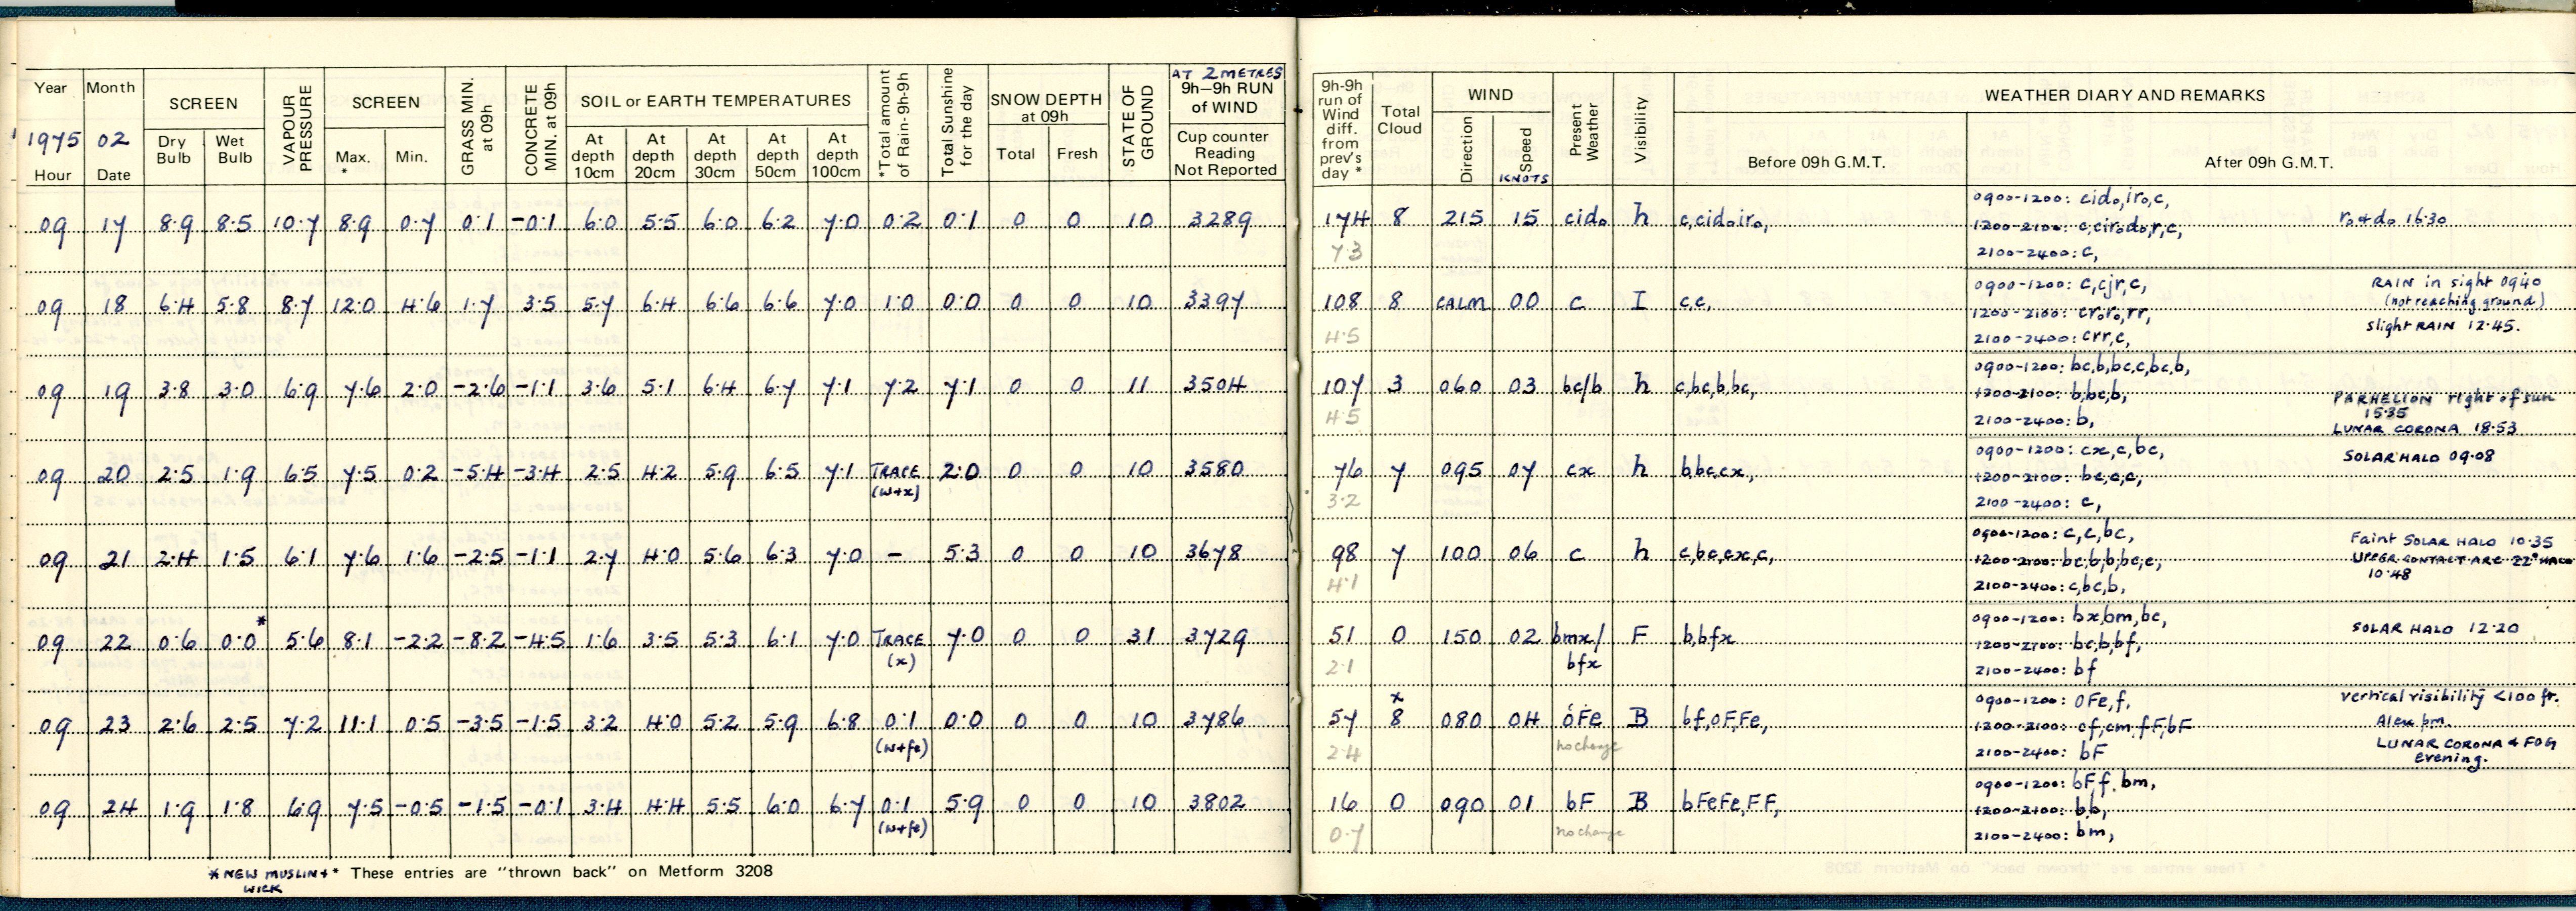 Year Month SCREEN VAPOUR PRESSURE SCREEN GRASS MIN. at 09h CONCRETE MIN. at 09h SOIL or EARTH TEMPERATURES *Total amount of Rain-9h-9h Total Sunshine for the day SNOW DEPTH at 09h STATE OF GROUND AT 2 METRES 9h–9h RUN of WIND
1975 02 Dry Bulb Wet Bulb Max. * Min. At depth 10cm At depth 20cm At depth 30cm At depth 50cm At depth 100cm Total Fresh Cup counter Reading Not Reported
Hour Date
09 17 8.9 8.5 10.7 8.9 0.7 0.1 -0.1 6.0 5.5 6.0 6.2 7.0 0.2 0.1 0 0 10 3289
09 18 6.4 5.8 8.7 12.0 4.6 1.7 3.5 5.7 6.4 6.6 6.6 7.0 1.0 0.0 0 0 10 3397
09 19 3.8 3.0 6.9 7.6 2.0 -2.6 -1.1 3.6 5.1 6.4 6.7 7.1 7.2 7.1 0 0 11 3504
09 20 2.5 1.9 6.5 7.5 0.2 -5.4 -3.4 2.5 4.2 5.9 6.5 7.1 TRACE 2.0 0 0 10 3580
(w+x)
09 21 2.4 1.5 6.1 7.6 1.6 -2.5 -1.1 2.7 4.0 5.6 6.3 7.0 – 5.3 0 0 10 3678
09 22 0.6 0.0* 5.6 8.1 -2.2 -8.2 -4.5 1.6 3.5 5.3 6.1 7.0 TRACE 7.0 0 0 31 3729
(x)
09 23 2.6 2.5 7.2 11.1 0.5 -3.5 -1.5 3.2 4.0 5.2 5.9 6.8 0.1 0.0 0 0 10 3786
(w+fe)
09 24 1.9 1.8 6.9 7.5 -0.5 -1.5 -0.1 3.4 4.4 5.5 6.0 6.7 0.1 5.9 0 0 10 3802
(w+fe)
*NEW MUSLIN + WICK
* These entries are "thrown back" on Metform 3208
9h-9h run of Wind diff. from prev's day * Total Cloud WIND Present Weather Visibility WEATHER DIARY AND REMARKS
Direction Speed KNOTS Before 09h G.M.T. After 09h G.M.T.
0900-1200: cido,iro,c,
174 8 215 15 cido h c,cidoiro, 1200-2100: c,cirodo,r,c, ro+do 16.30
7.3 2100-2400: c,
0900-1200: c,cjr,c, RAIN in sight 0940
(not reaching ground)
108 8 CALM 00 c I c,c, 1200-2100: croro,rr, slight RAIN 12.45.
4.5 2100-2400: crr,c,
0900-1200: bc,b,bc,c,bc,b,
107 3 060 03 bc/b h c,bc,b,bc, 1200-2100: b,bc,b, PARHELION right of sun 15.35
4.5 2100-2400: b, LUNAR CORONA 18.53
0900-1200: cx,c,bc, SOLAR HALO 09.08
76 7 095 07 cx h b,bc,cx, 1200-2100: bc,c,c,
3.2 2100-2400: c,
0900-1200: c,c,bc, Faint SOLAR HALO 10.35
98 7 100 06 c h c,bc,cx,c, 1200-2100: bc,b,b,bc,c, UPPER CONTACT ARC 22° HALO 10.48
4.1 2100-2400: c,bc,b,
0900-1200: bx,bm,bc, SOLAR HALO 12.20
51 0 150 02 bmx/ F b,bfx 1200-2100: bc,b,bf,
2.1 bfx 2100-2400: bf
x 0900-1200: OFe,f, Vertical visibility <100 ft.
57 8 080 04 oFe B bf,oF,Fe, 1200-2100: of,cm,fF,bF Alex bm.
2.4 no change 2100-2400: bF LUNAR CORONA & FOG evening.
0900-1200: bFf,bm,
16 0 090 01 bF B bFeFe,FF, 1200-2100: b,b,
0.7 no change 2100-2400: bm,